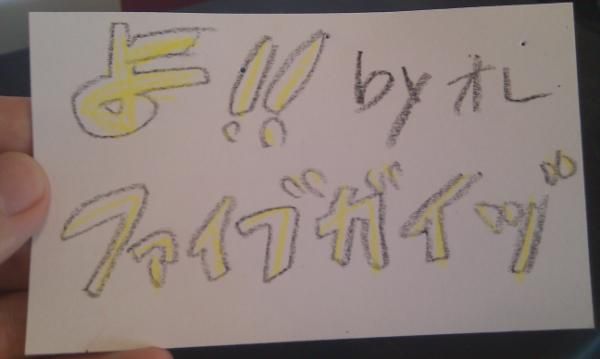 よ!! by オレ
ファイブガイヅ